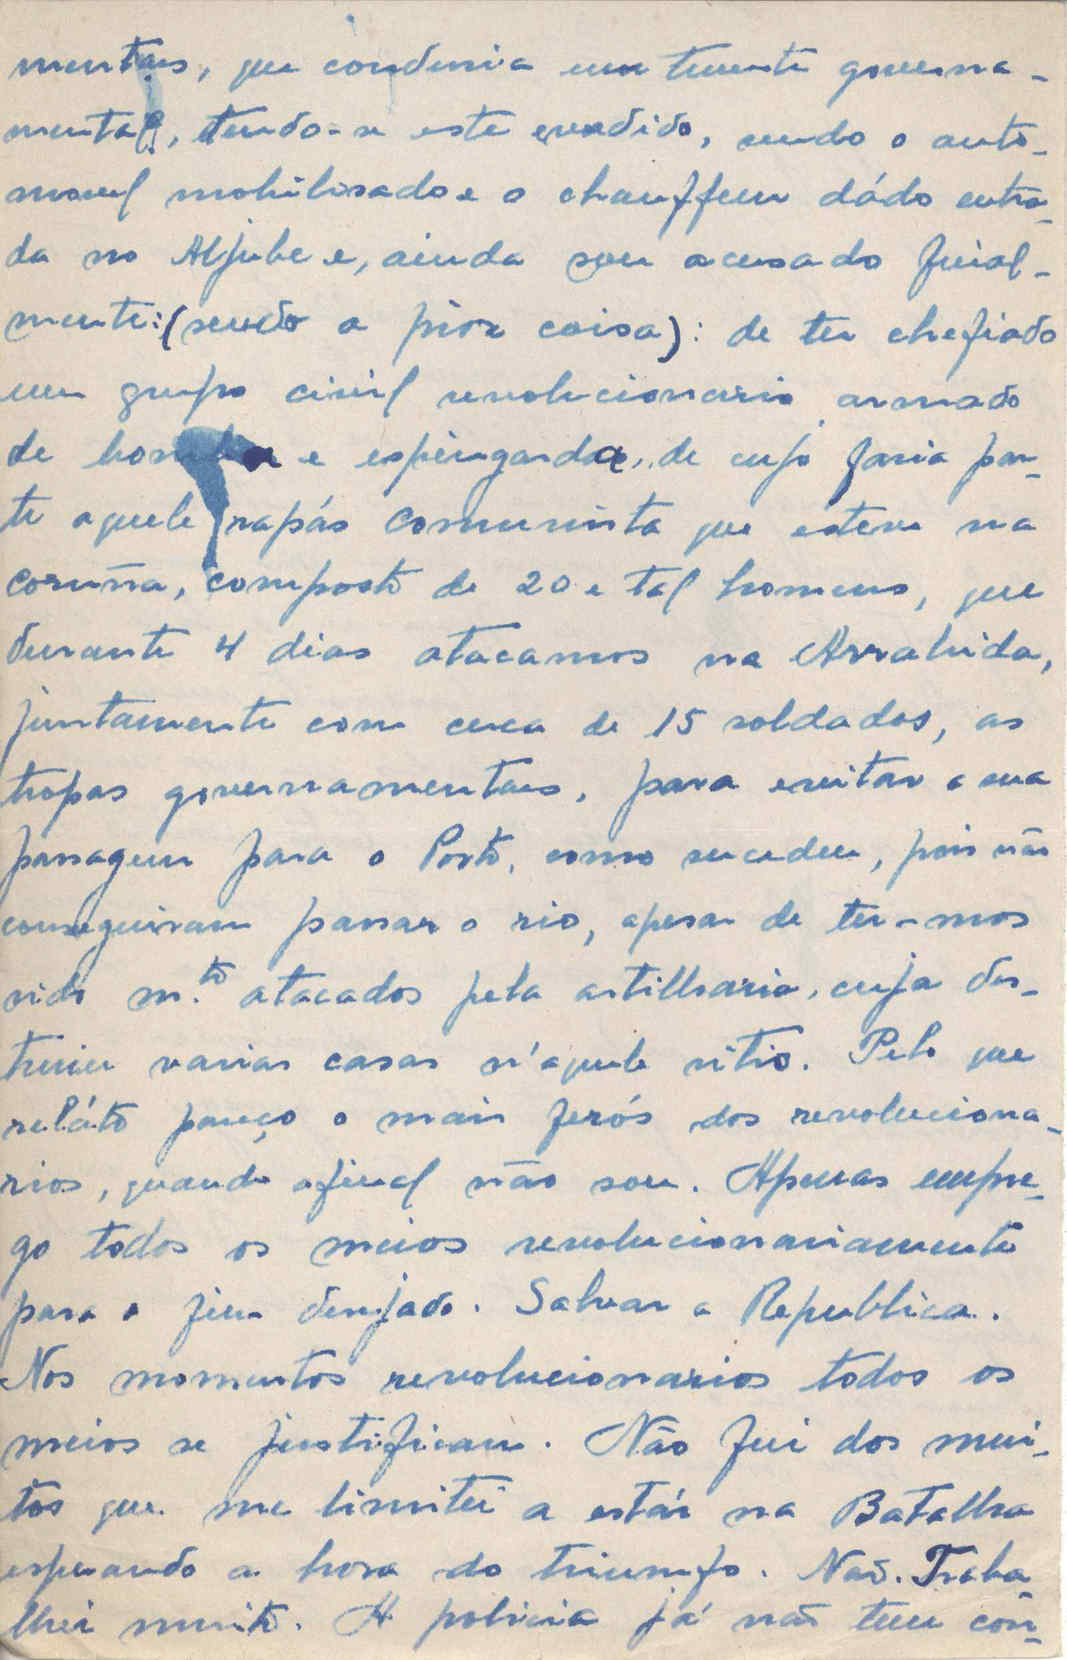 mentaes, que condusia um tenente governa-
mental, tendo-se este evadido, sendo o auto-
movel mobilisado e o chauffeur dádo entra-
da no Aljube e, ainda sou acusado final-
mente: (sendo a pior coisa): de ter chefiado
um grupo civil revolucionario armado
de bombas e espingardas, de cujo faria par-
te aquele rapás comunista que esteve na
coruña, composto de 20 e tal homens, que
durante 4 dias atacamos na Arrabida,
juntamente com cerca de 15 soldados, as
tropas governamentaes, para evitar a sua
passagem para o Porto, como sucedeu, pois não
conseguiram passar o rio, apesar de ter-mos
sido m.to atacados pela artilharia, cuja des-
truiu varias casas n'aquele sitio. Pelo que
reláto pareço o mais ferós dos revoluciona-
rios, quando afinal não sou. Apenas empre-
go todos os meios revolucionariamente
para o fim desejado. Salvar a Republica.
Nos momentos revolucionarios todos os
meios se justificam. Não fui dos mui-
tos que me limitei a estár na Batalha
esperando a hora do triumfo. Não. Traba-
lhei muito. A policia já não tem con-